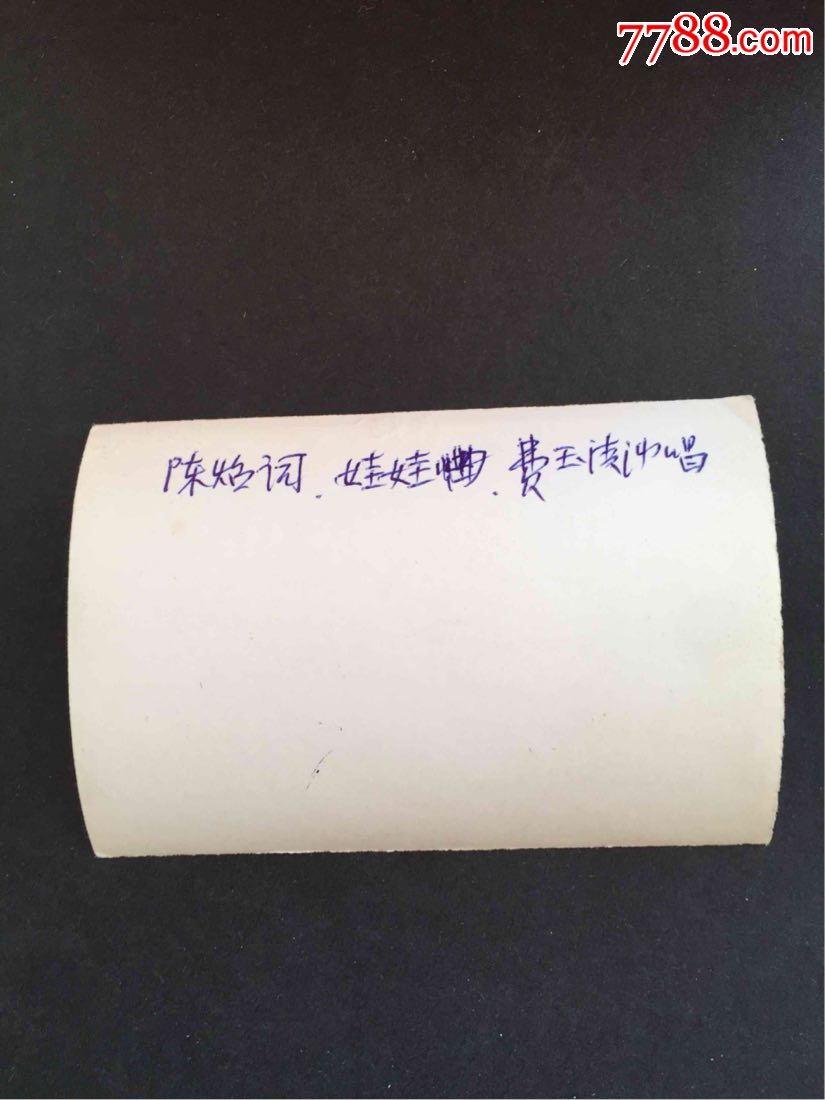 7788.com
陈焰词.娃娃曲.费玉清演唱